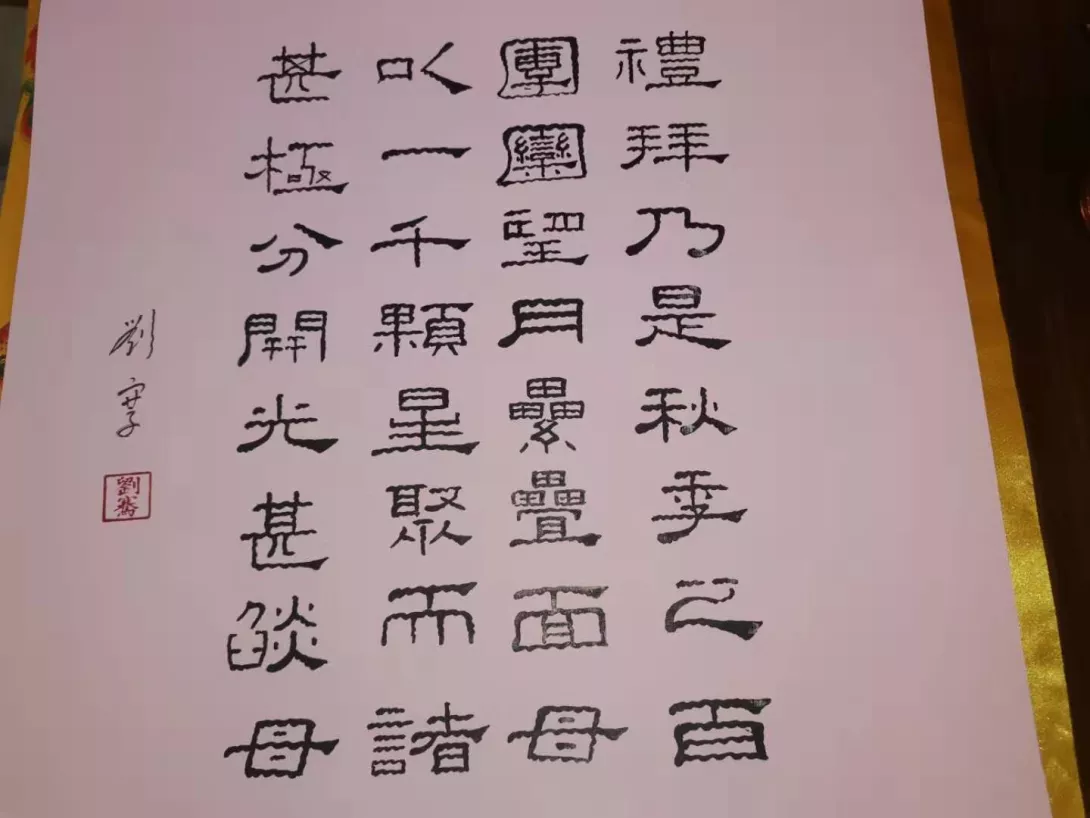 禮拜乃是秋季之百
團圞望月纍疊面母
以一千顆星聚而諸
甚極分開光甚燄母
劉
劉